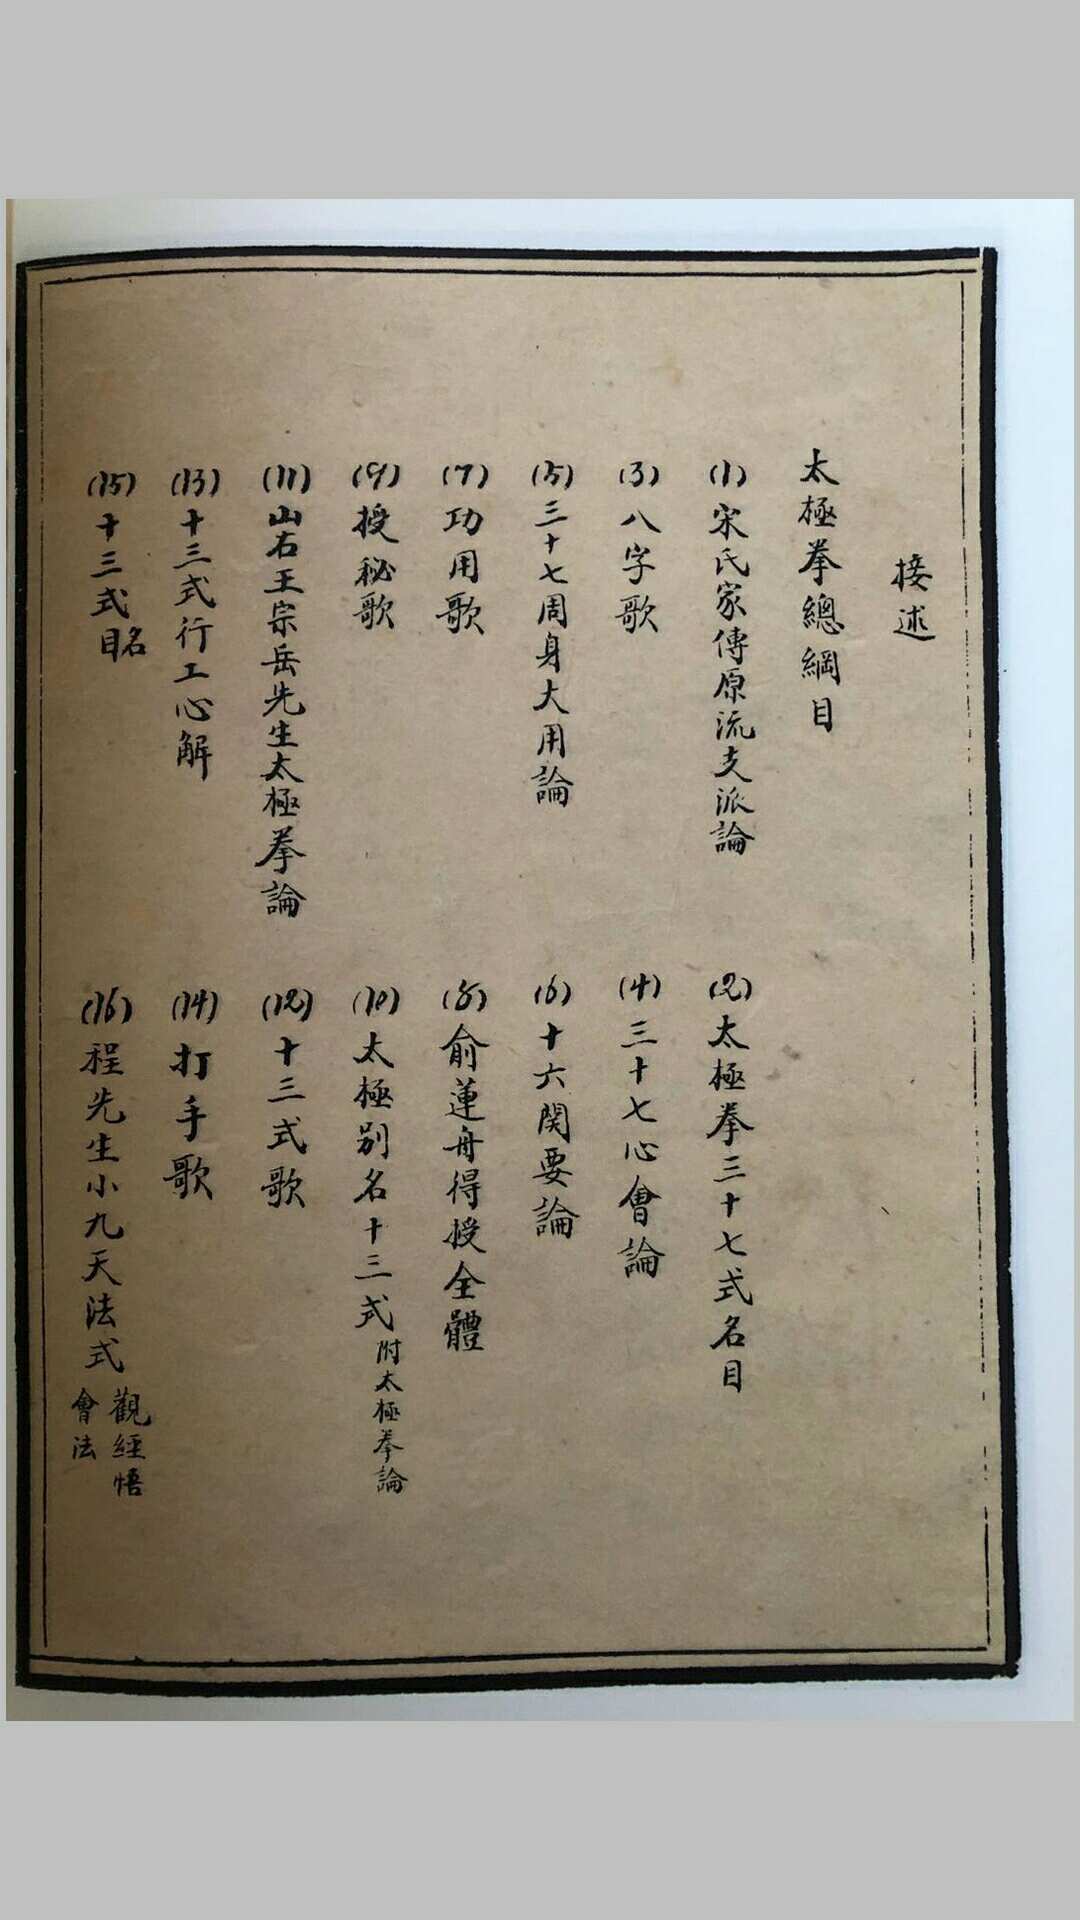 接述
太極拳總綱目
(1)宋氏家傳原流支派論
(2)太極拳三十七式名目
(3)八字歌
(4)三十七心會論
(5)三十七周身大用論
(6)十六関要論
(7)功用歌
(8)俞蓮舟得授全體
(9)授秘歌
(10)太極別名十三式附太極拳論
(11)山右王宗岳先生太極拳論
(12)十三式歌
(13)十三式行工心解
(14)打手歌
(15)十三式名目
(16)程先生小九天法式觀經悟會法